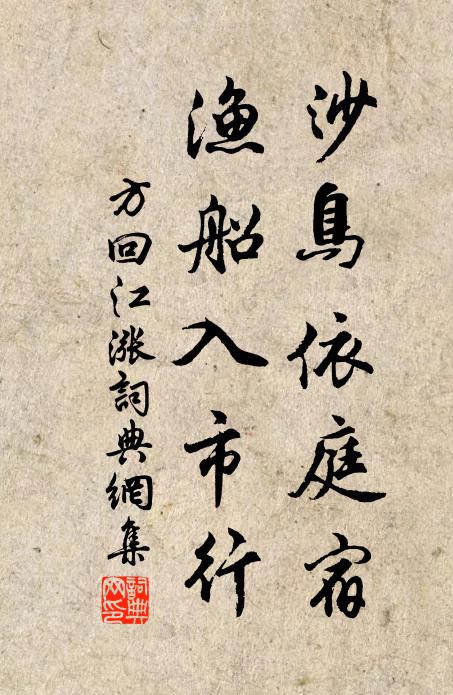 沙鳥依庭宿
漁船入市行
方回江漲詞典網集
詞典網印